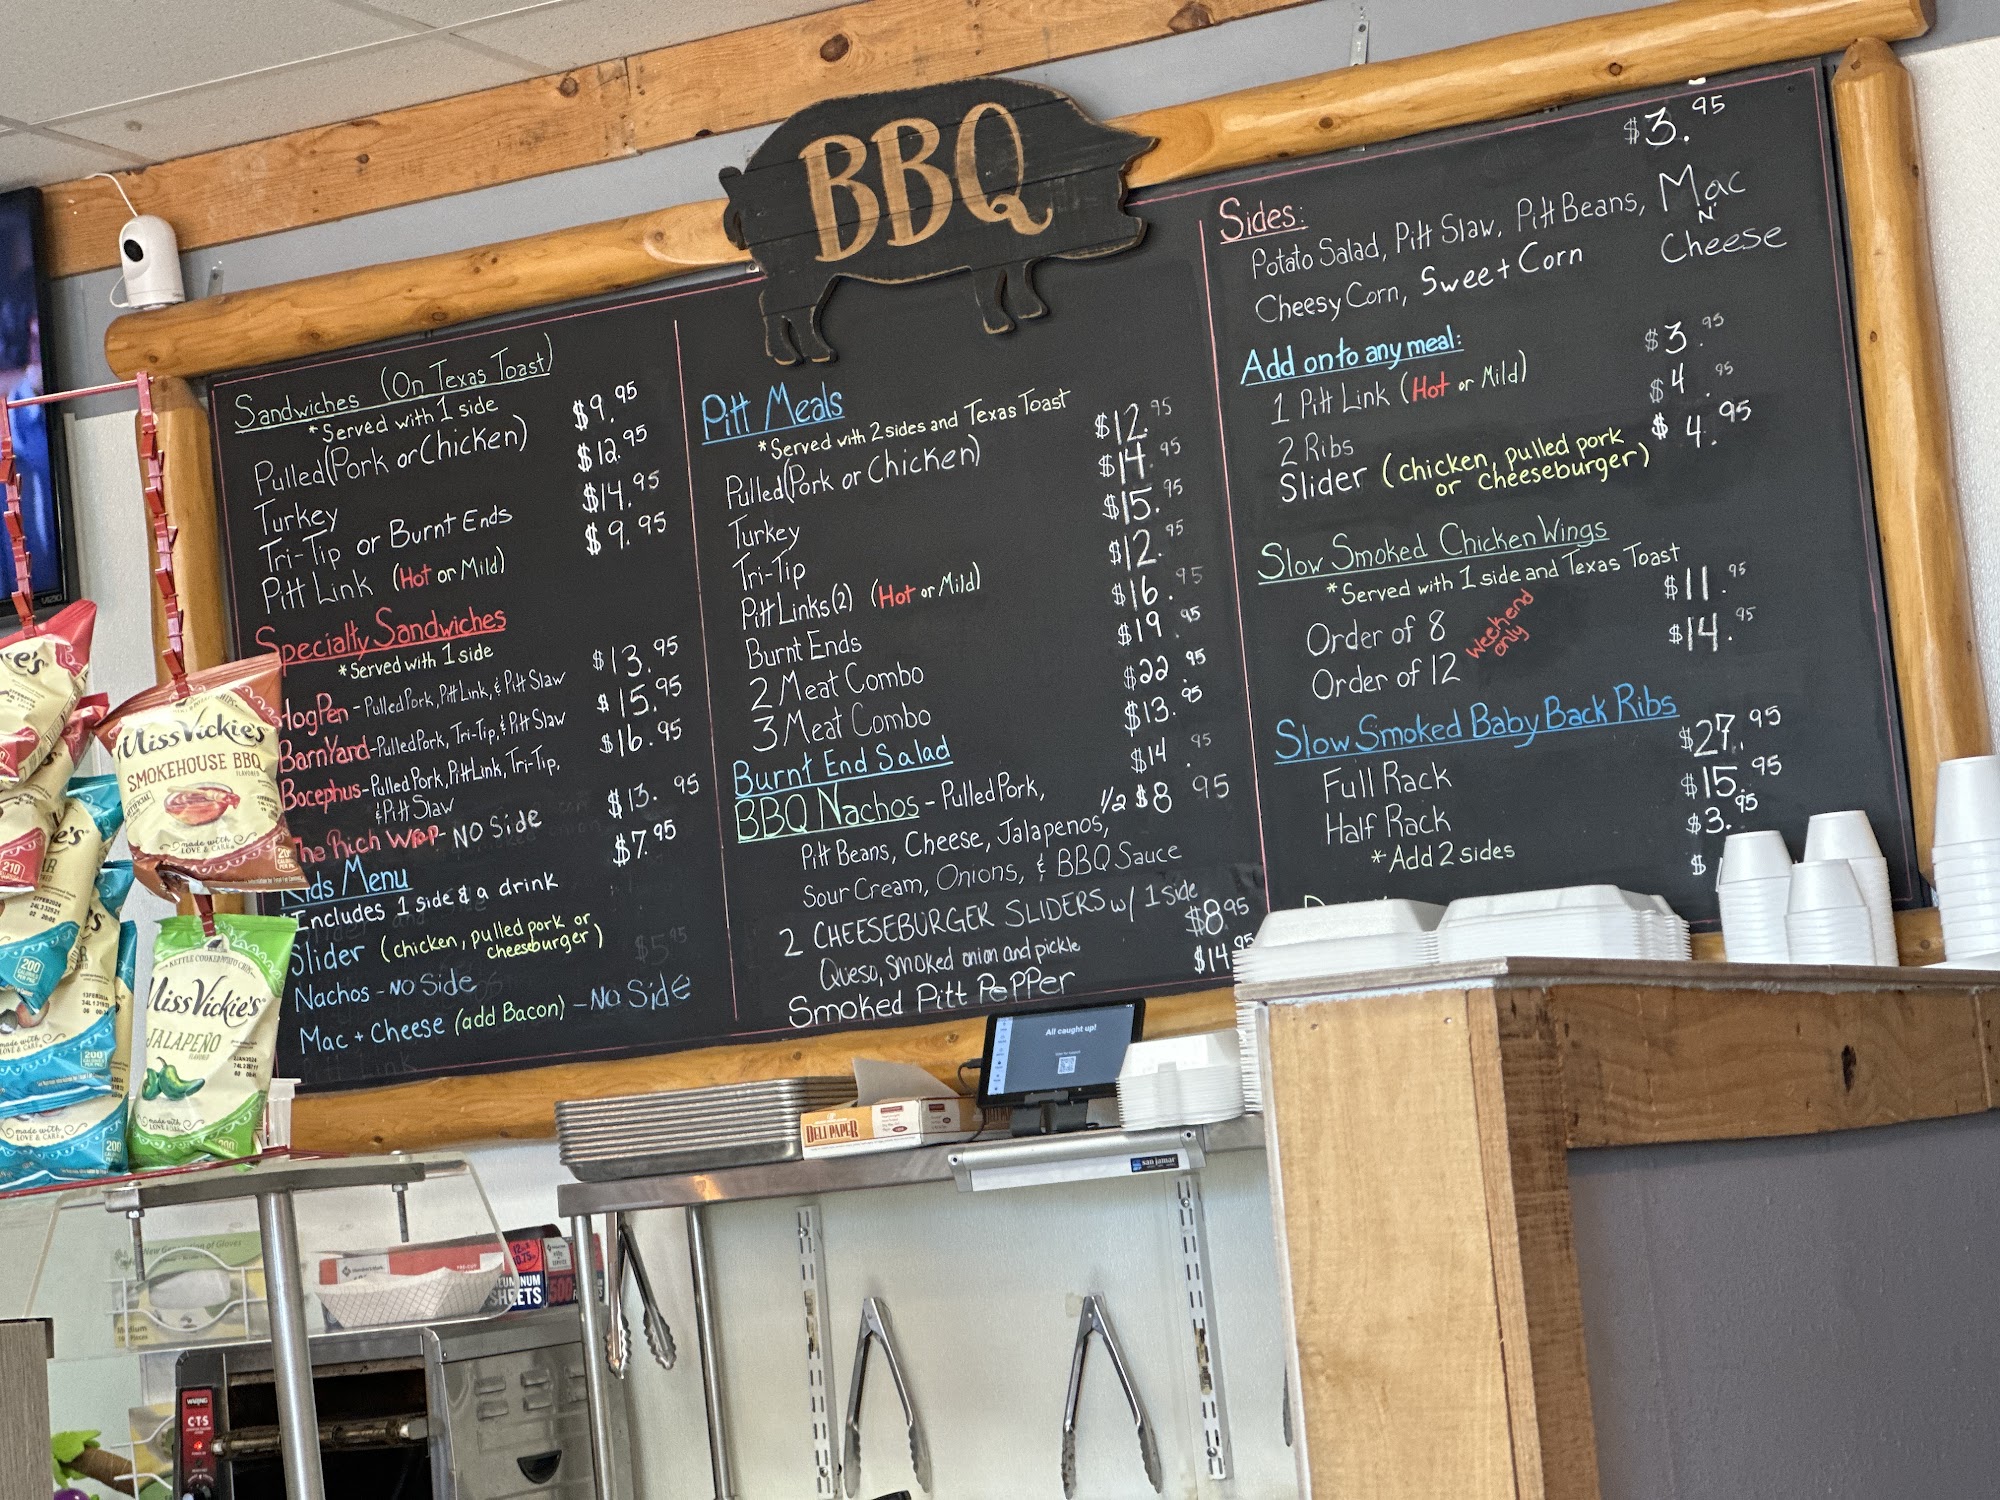 BBQ
Sandwiches (On Texas Toast)
*Served with 1 side
Pulled (Pork or Chicken) $9.95
Turkey $12.95
Tri-Tip or Burnt Ends $14.95
Pitt Link (Hot or Mild) $9.95
Specialty Sandwiches
*Served with 1 side
HogPen - Pulled Pork, Pitt Link, & Pitt Slaw $13.95
BarnYard - Pulled Pork, Tri-Tip, & Pitt Slaw $15.95
Bocephus - Pulled Pork, Pitt Link, Tri-Tip, $16.95
& Pitt Slaw
The Rich Wrap - NO Side $13.95
Kids Menu $7.95
*Includes 1 side & a drink
Slider (chicken, pulled pork or
cheeseburger)
Nachos - NO Side
Mac + Cheese (add Bacon) - No Side
Pitt Meals
*Served with 2 sides and Texas Toast
Pulled (Pork or Chicken) $12.95
Turkey $14.95
Tri-Tip $15.95
Pitt Links (2) (Hot or Mild) $12.95
Burnt Ends $16.95
2 Meat Combo $19.95
3 Meat Combo $22.95
Burnt End Salad $13.95
BBQ Nachos - Pulled Pork, $14.95
Pitt Beans, Cheese, Jalapenos, 1/2 $8 95
Sour Cream, Onions, & BBQ Sauce
2 CHEESEBURGER SLIDERS w/ 1 side
Queso, smoked onion and pickle $8.95
Smoked Pitt Pepper $14.95
Sides: $3.95
Potato Salad, Pitt Slaw, Pitt Beans, Mac
N'
Cheesy Corn, Sweet Corn Cheese
Add onto any meal:
1 Pitt Link (Hot or Mild) $3.95
2 Ribs $4.95
Slider (chicken, pulled pork $4.95
or cheeseburger)
Slow Smoked Chicken Wings
*Served with 1 side and Texas Toast
Order of 8 $11.95
Order of 12 $14.95
Weekend
only
Slow Smoked Baby Back Ribs
Full Rack $27.95
Half Rack $15.95
*Add 2 sides $3.95
$
Miss Vickie's
SMOKEHOUSE BBQ
FLAVORED
made with
LOVE & CARE
KETTLE COOKED POTATO CHIPS
Miss Vickie's
JALAPEÑO
FLAVORED
made with
LOVE & CARE
200
210
200
200
All caught up!
DELI PAPER
san jamar
New Generation of Gloves
Medium
ALUMINUM
SHEETS
500
WARING
CTS
VIZIO